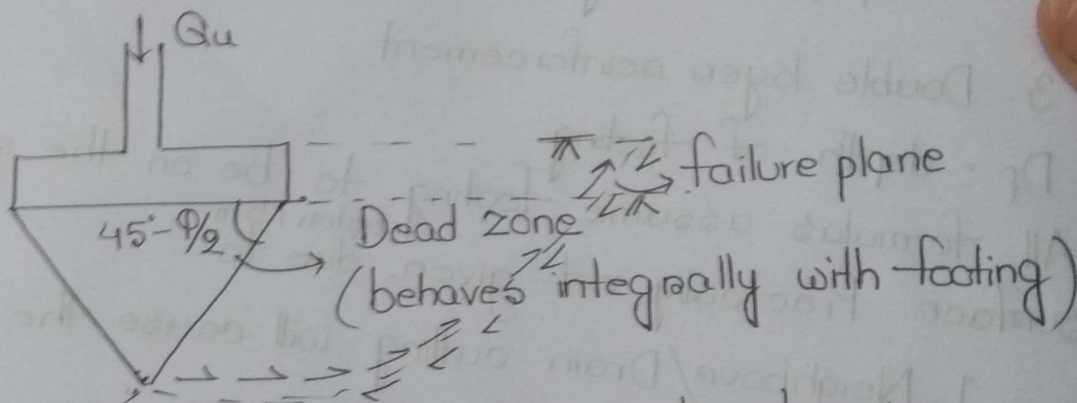 Qu
failure plane
45°-φ/2
Dead zone
(behaves integrally with footing)